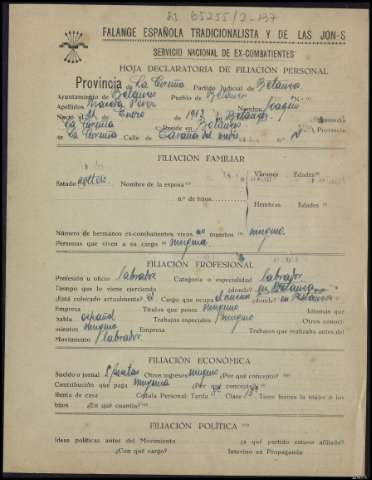 83 B5255/2-137
FALANGE ESPAÑOLA TRADICIONALISTA Y DE LAS JON-S
SERVICIO NACIONAL DE EX-COMBATIENTES
HOJA DECLARATORIA DE FILIACIÓN PERSONAL
Provincia de La Coruña Partido Judicial de Betanzos
Ayuntamiento de Betanzos Pueblo de Betanzos
Apellidos Pérez Nombre
Nació el Enero de 1913 en Betanzos
La Coruña Reside en Betanzos Provincia
La Coruña Calle de n.º
FILIACIÓN FAMILIAR
Varones Edades
Estado soltero Nombre de la esposa
n.º de hijos
Hembras Edades
Número de hermanos ex-combatientes vivos no muertos ninguno
Personas que viven a su cargo ninguna
FILIACIÓN PROFESIONAL
Profesión u oficio labrador Categoría o especialidad labrador
Tiempo que lo viene ejerciendo ¿donde? en Betanzos
¿Está colocado actualmente? sí Cargo que ocupa ¿donde? en Betanzos
Empresa Títulos que posee ninguno Idiomas que
habla español Trabajos especiales ninguno Otros conoci-
mientos ninguno Empresa Trabajos que realizaba antes del
Movimiento labrador
FILIACIÓN ECONÓMICA
Sueldo o jornal Otros ingresos ninguno ¿Por qué concepto?
Contribución que paga ninguna ¿Por qué concepto?
Renta de casa Cédula Personal Tarifa Clase Tiene bienes la mujer o los
hijos ¿En qué cuantía?
FILIACIÓN POLÍTICA
Ideas políticas antes del Movimiento ¿a qué partido estuvo afiliado?
¿Con qué cargo? Intervino en Propaganda